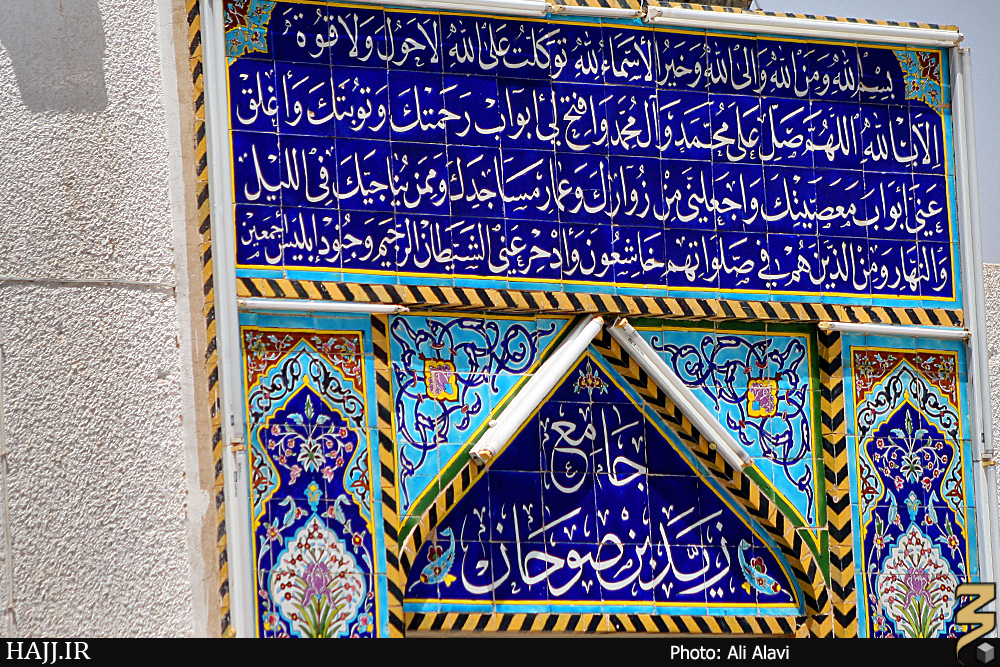 بسم الله ومن الله والی الله وخیر الاسماء لله توکلت علی الله لاحول ولا قوة
الا بالله اللهم صل علی محمد وآل محمد وافتح لی أبواب رحمتك وتوبتك وأغلق
عنی أبواب معصیتك واجعلنی من زوارك وعمار مساجدك وممن یناجیك فی اللیل
والنهار ومن الذین هم فی صلواتهم خاشعون وادحر عنی الشیطان الرجیم وجنود إبلیس أجمعین
جامع
زید بن صوحان
HAJJ.IR
Photo: Ali Alavi